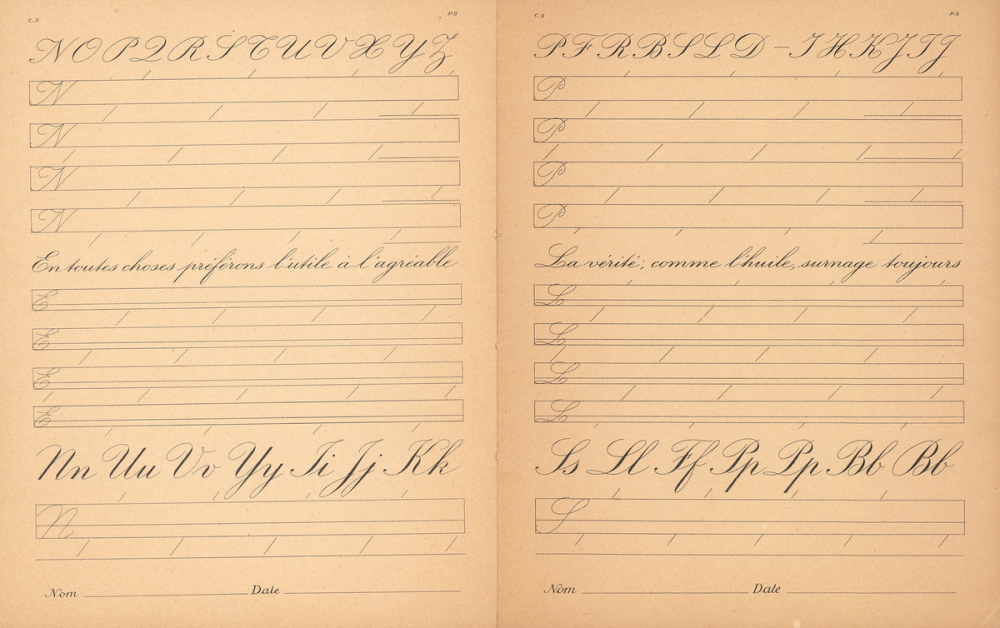 C.3
P.2
N O P Q R S T U V X Y Z
N
N
N
N
En toutes choses préférons l'utile à l'agréable
E
E
E
E
Nn Uu Vv Yy Ii Jj Kk
N
Nom Date
C.3
P.3
P F R B S L D - I H K J I J
P
P
P
P
La vérité, comme l'huile, surnage toujours
L
L
L
L
Ss Ll Ff Pp Pp Bb Bb
S
Nom Date